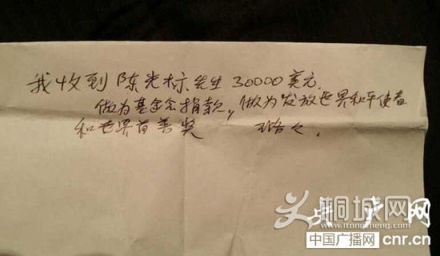 我收到陈光标先生30000美元.
做为基金会捐款,做为发放世界和平使者
和世界首善奖
桐城网
www.itongmeng.com
央广网
中国广播网 cnr.cn